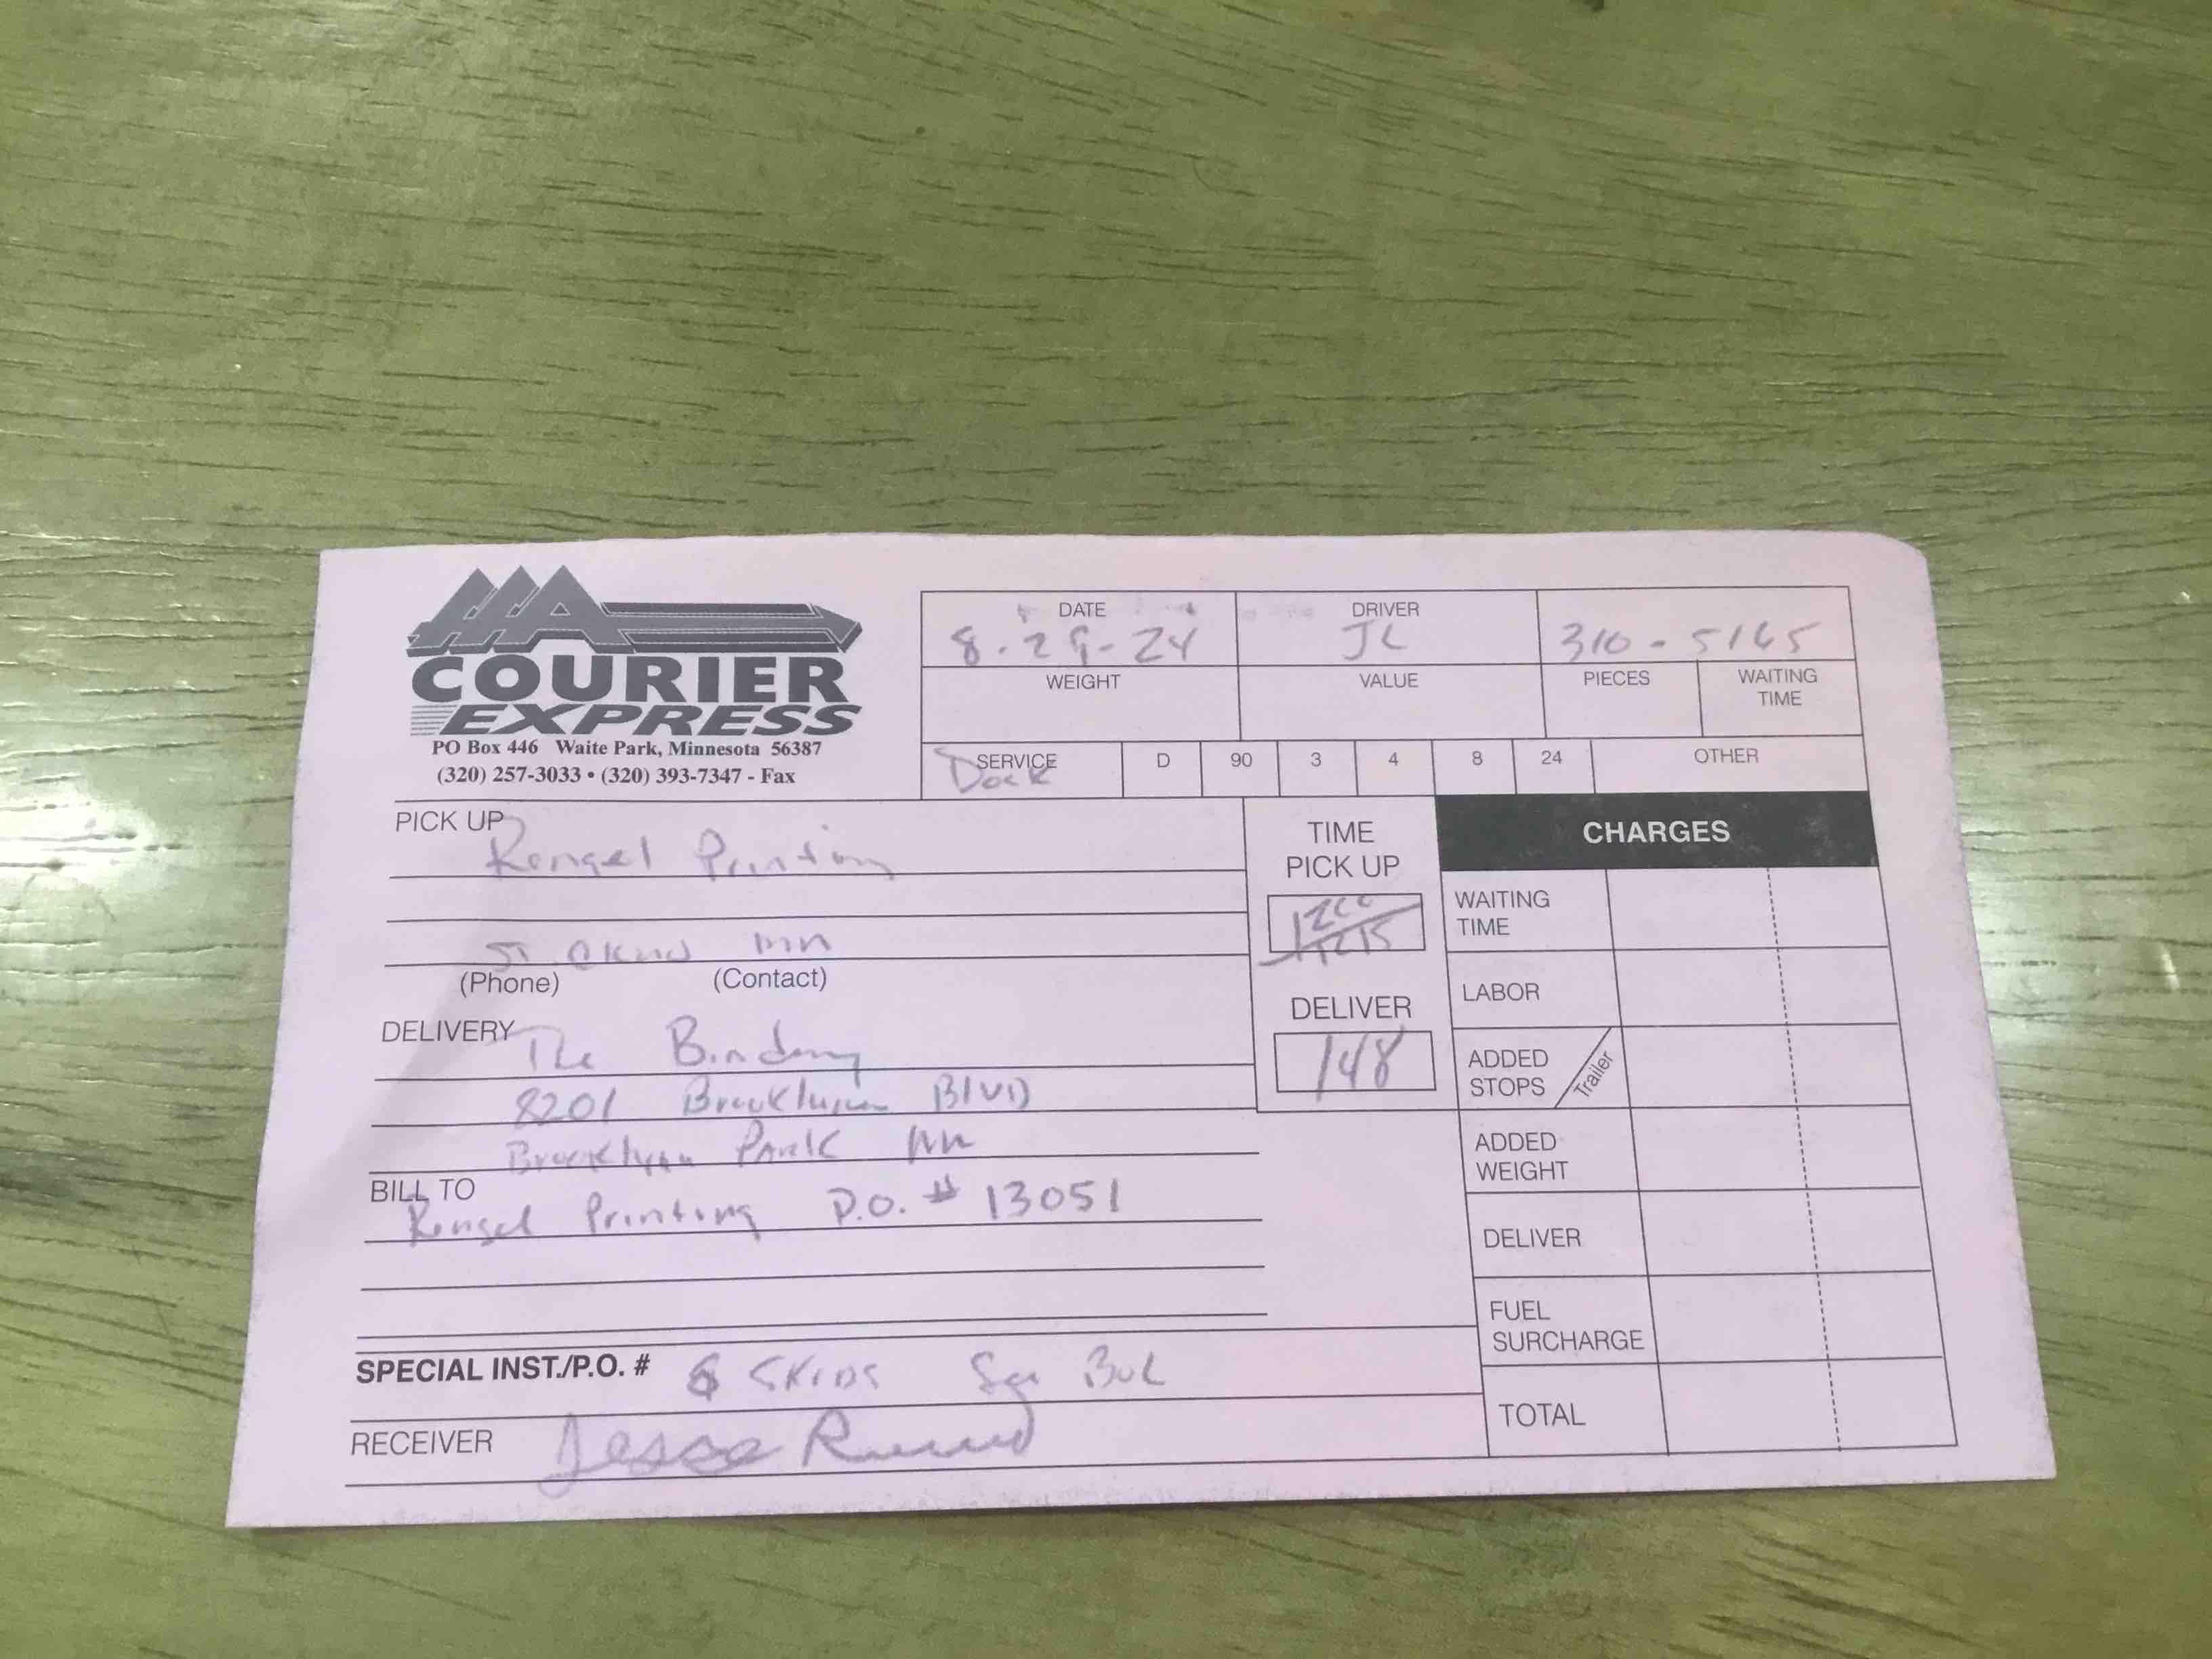 AAA
COURIER
EXPRESS
PO Box 446 Waite Park, Minnesota 56387
(320) 257-3033 • (320) 393-7347 - Fax
DATE
8-29-24
DRIVER
JL
310-5165
WEIGHT
VALUE
PIECES
WAITING
TIME
SERVICE
Dock
D
90
3
4
8
24
OTHER
PICK UP
Rengel Printing
ST. Cloud mn
(Phone) (Contact)
TIME
PICK UP
1200
1215
DELIVERY
The Bindery
8201 Brooklyn BLVD
Brooklyn Park mn
DELIVER
148
BILL TO
Rengel Printing P.O. # 13051
SPECIAL INST./P.O. # 6 SKIDS BOL
RECEIVER Jesse
CHARGES
WAITING
TIME
LABOR
ADDED
STOPS
Trailer
ADDED
WEIGHT
DELIVER
FUEL
SURCHARGE
TOTAL